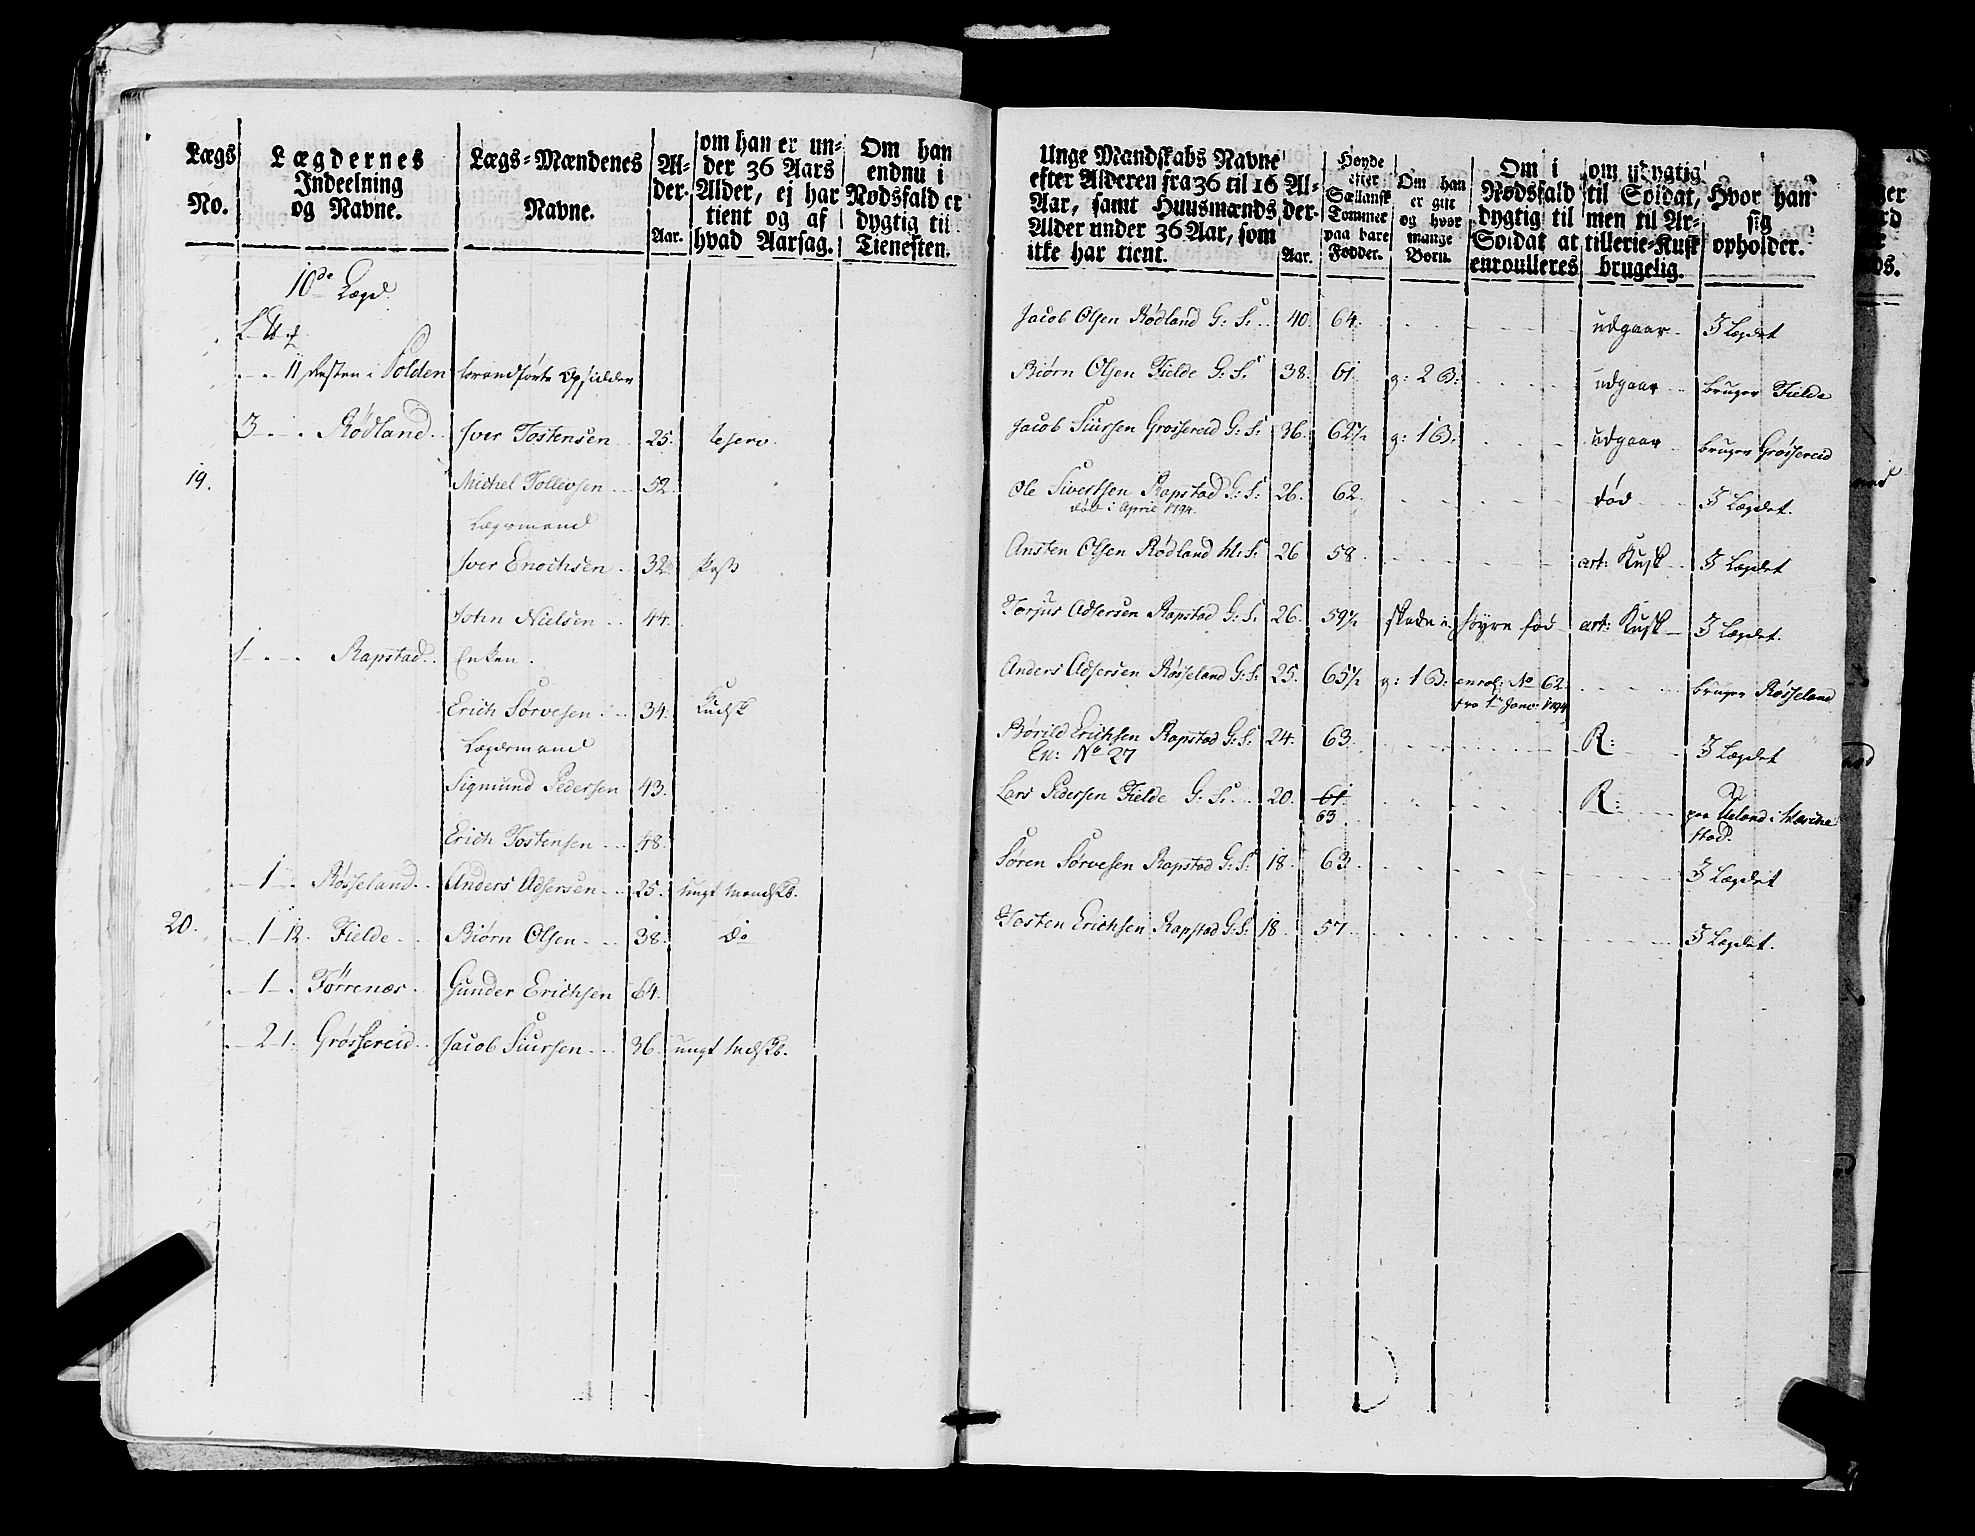 Lægs No.
Lægdernes Indeelning og Navne.
Lægs-Mændenes Navne.
Alder. Aar.
om han er under 36 Aars Alder, ej har tient og af hvad Aarsag.
Om han endnu i Nødsfald er dygtig til Tienesten.
10de Lægd.
11 Resten i Polden
3 Rødland Iver Tostensen 25. reserv.
19. Michel Tollevsen 52.
Lægsmand
Iver Enochsen 32
John Nielsen 44.
1 Rapstad Enken.
Erich Sørvesen 34. Kudsk
Lægdsmand
Sigmund Pedersen 43.
Erich Tostensen 48.
1 Røsseland Anders Adsersen 25. ungt Mandskb.
20. 1 12. Fielde Biørn Olsen 38. Do
1 Tørrenæs Gunder Erichsen 64.
2 1. Grøssereid Jacob Siursen 36. ungt Mdskb.
Unge Mandskabs Navne efter Alderen fra 36 til 16 Aar, samt Huusmænds Alder under 36 Aar, som ikke har tient.
Alder. Aar.
Høyde efter Sællansk Tommer paa bare Fødder.
Om han er gift og hvor mange Børn.
Om i Nødsfald dygtig til Soldat at enroulleres
om udygtig til Soldat, men til Artillerie-Kusk brugelig.
Hvor han sig opholder.
Jacob Olsen Rødland G: S. 40. 64. udgaar I Lægdet
Biørn Olsen Fielde G: S. 38. 61. g: 2 B: udgaar bruger Fielde
Jacob Siursen Grossereid G: S: 36. 62½ g: 1 B: udgaar bruger Grøssereid
Ole Sivertsen Rapstad G: S: 26. 62. død I Lægdet.
døde i April 1794.
Ansten Olsen Rødland H: S: 26 58 art: Kusk I Lægdet
Torjus Adsersen Rapstad G: S: 26. 59½ skade i høyre fod art: Kusk I Lægdet.
Anders Adsersen Røsseland G: S: 25. 65½ g: 1 B: enrol: No 62. bruger Røsseland
fra 1te Janv: 1794
Børild Erichsen Rapstad G: S: 24. 63. R: I Lægdet
En: No 27
Lars Pedersen Fielde G: S: 20. 61. R: paa Ueland i
63
Søren Sørvesen Rapstad G: S: 18. 63 I Lægdet
Tosten Erichsen Rapstad G: S: 18. 57 I Lægdet.